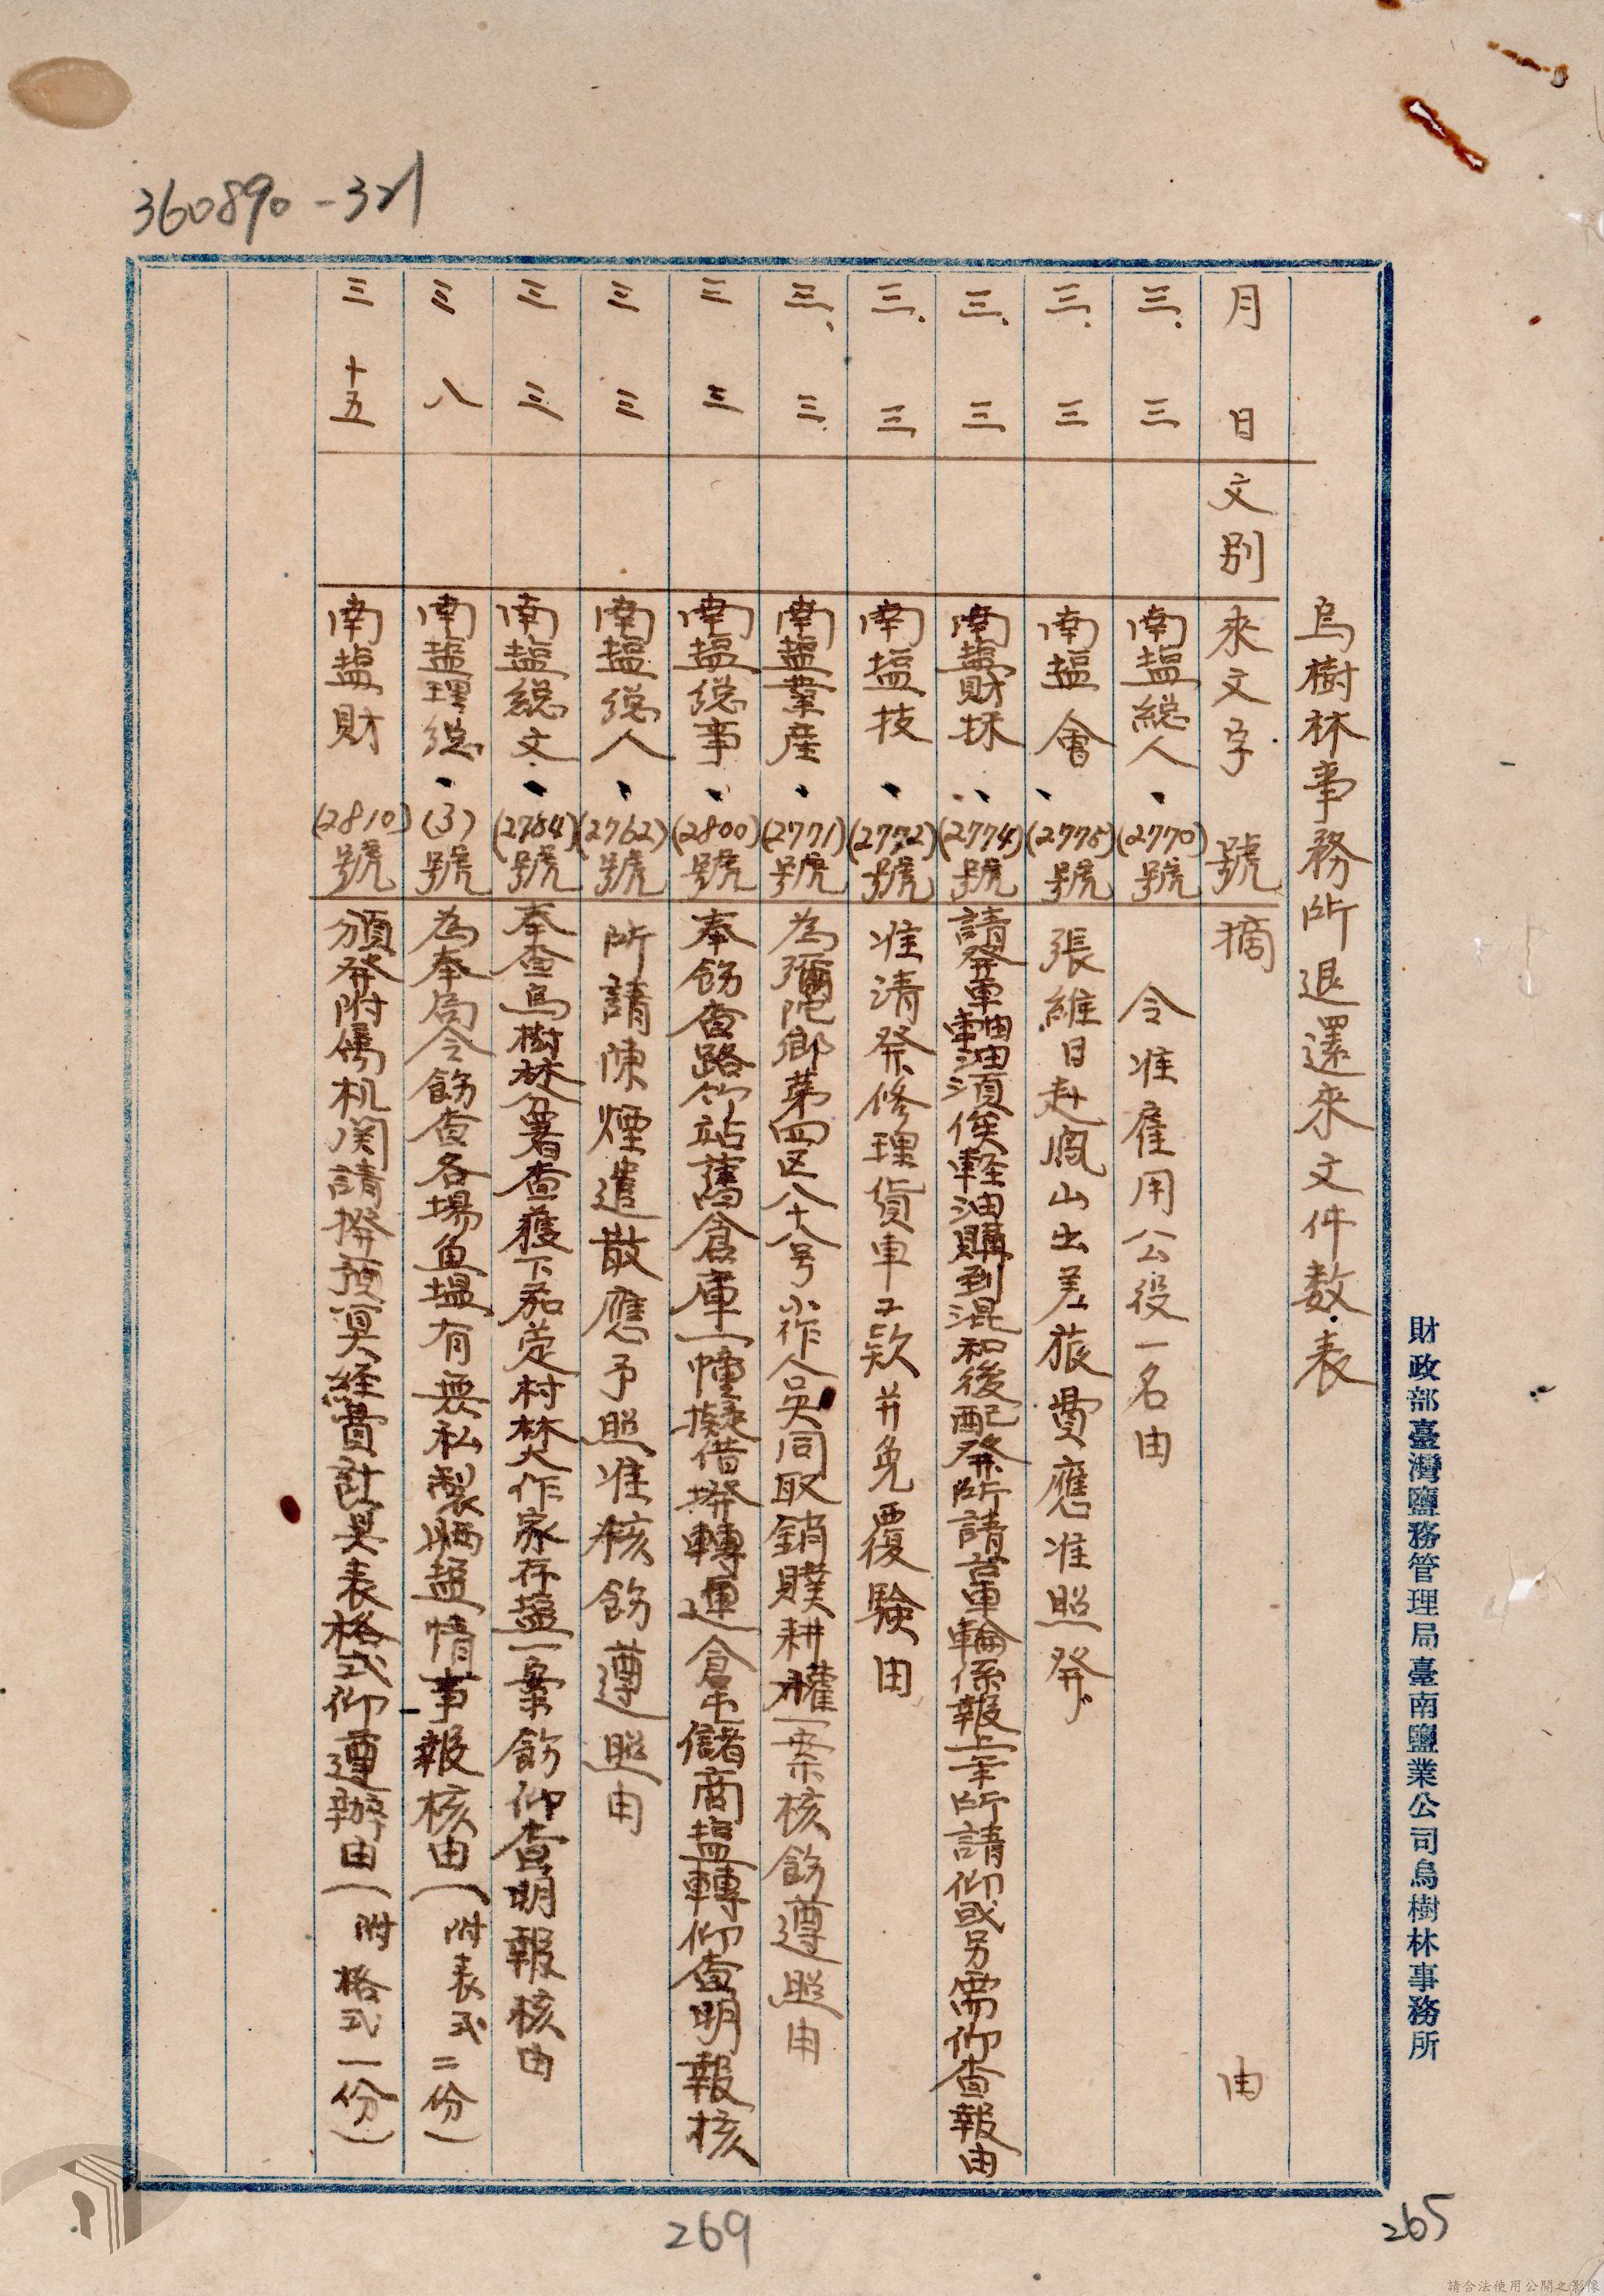 360890-321
財政部臺灣鹽務管理局臺南鹽業公司烏樹林事務所
烏樹林事務所退還來文件数表
月 日 文別 來文字 號 摘 由
三、 三 南塩総人、(2770)號 令准雇用公役一名由
三、 三 南塩會、(2775)號 張維日赴鳳山出差旅費應准照発
三、 三 南塩財採、(2774)號 請発車軸油須俟軽油購到混和後配発所請台車輪係報上年所請仰或另需仰查報由
三、 三 南塩技、(2772)號 准清発修理貨車工款并免覆驗由
三、 三 南塩業産、(2771)號 為彌陀鄉第四区八十八号小作人吳同取銷贌耕權一案核飭遵照由
三 三 南塩総事、(2800)號 奉飭查路竹站舊倉庫一幢擬借撥轉運倉屯儲商塩轉仰查明報核
三 三 南塩総人、(2762)號 所請陳煙遣散應予照准核飭遵照由
三 三 南塩総文、(2784)號 奉查烏樹林分署查獲下茄萣村焚火作家存塩一案飭仰查明報核由
三 八 南塩理総、(3)號 為奉局令飭查各場魚塭有無私製晒塩情事報核由(附表式二份)
三 十五 南塩財 (2810)號 頒発附属机関請撥預算経費計算表格式仰遵辦由(附格式一份)
269
265
請合法使用公開之影像